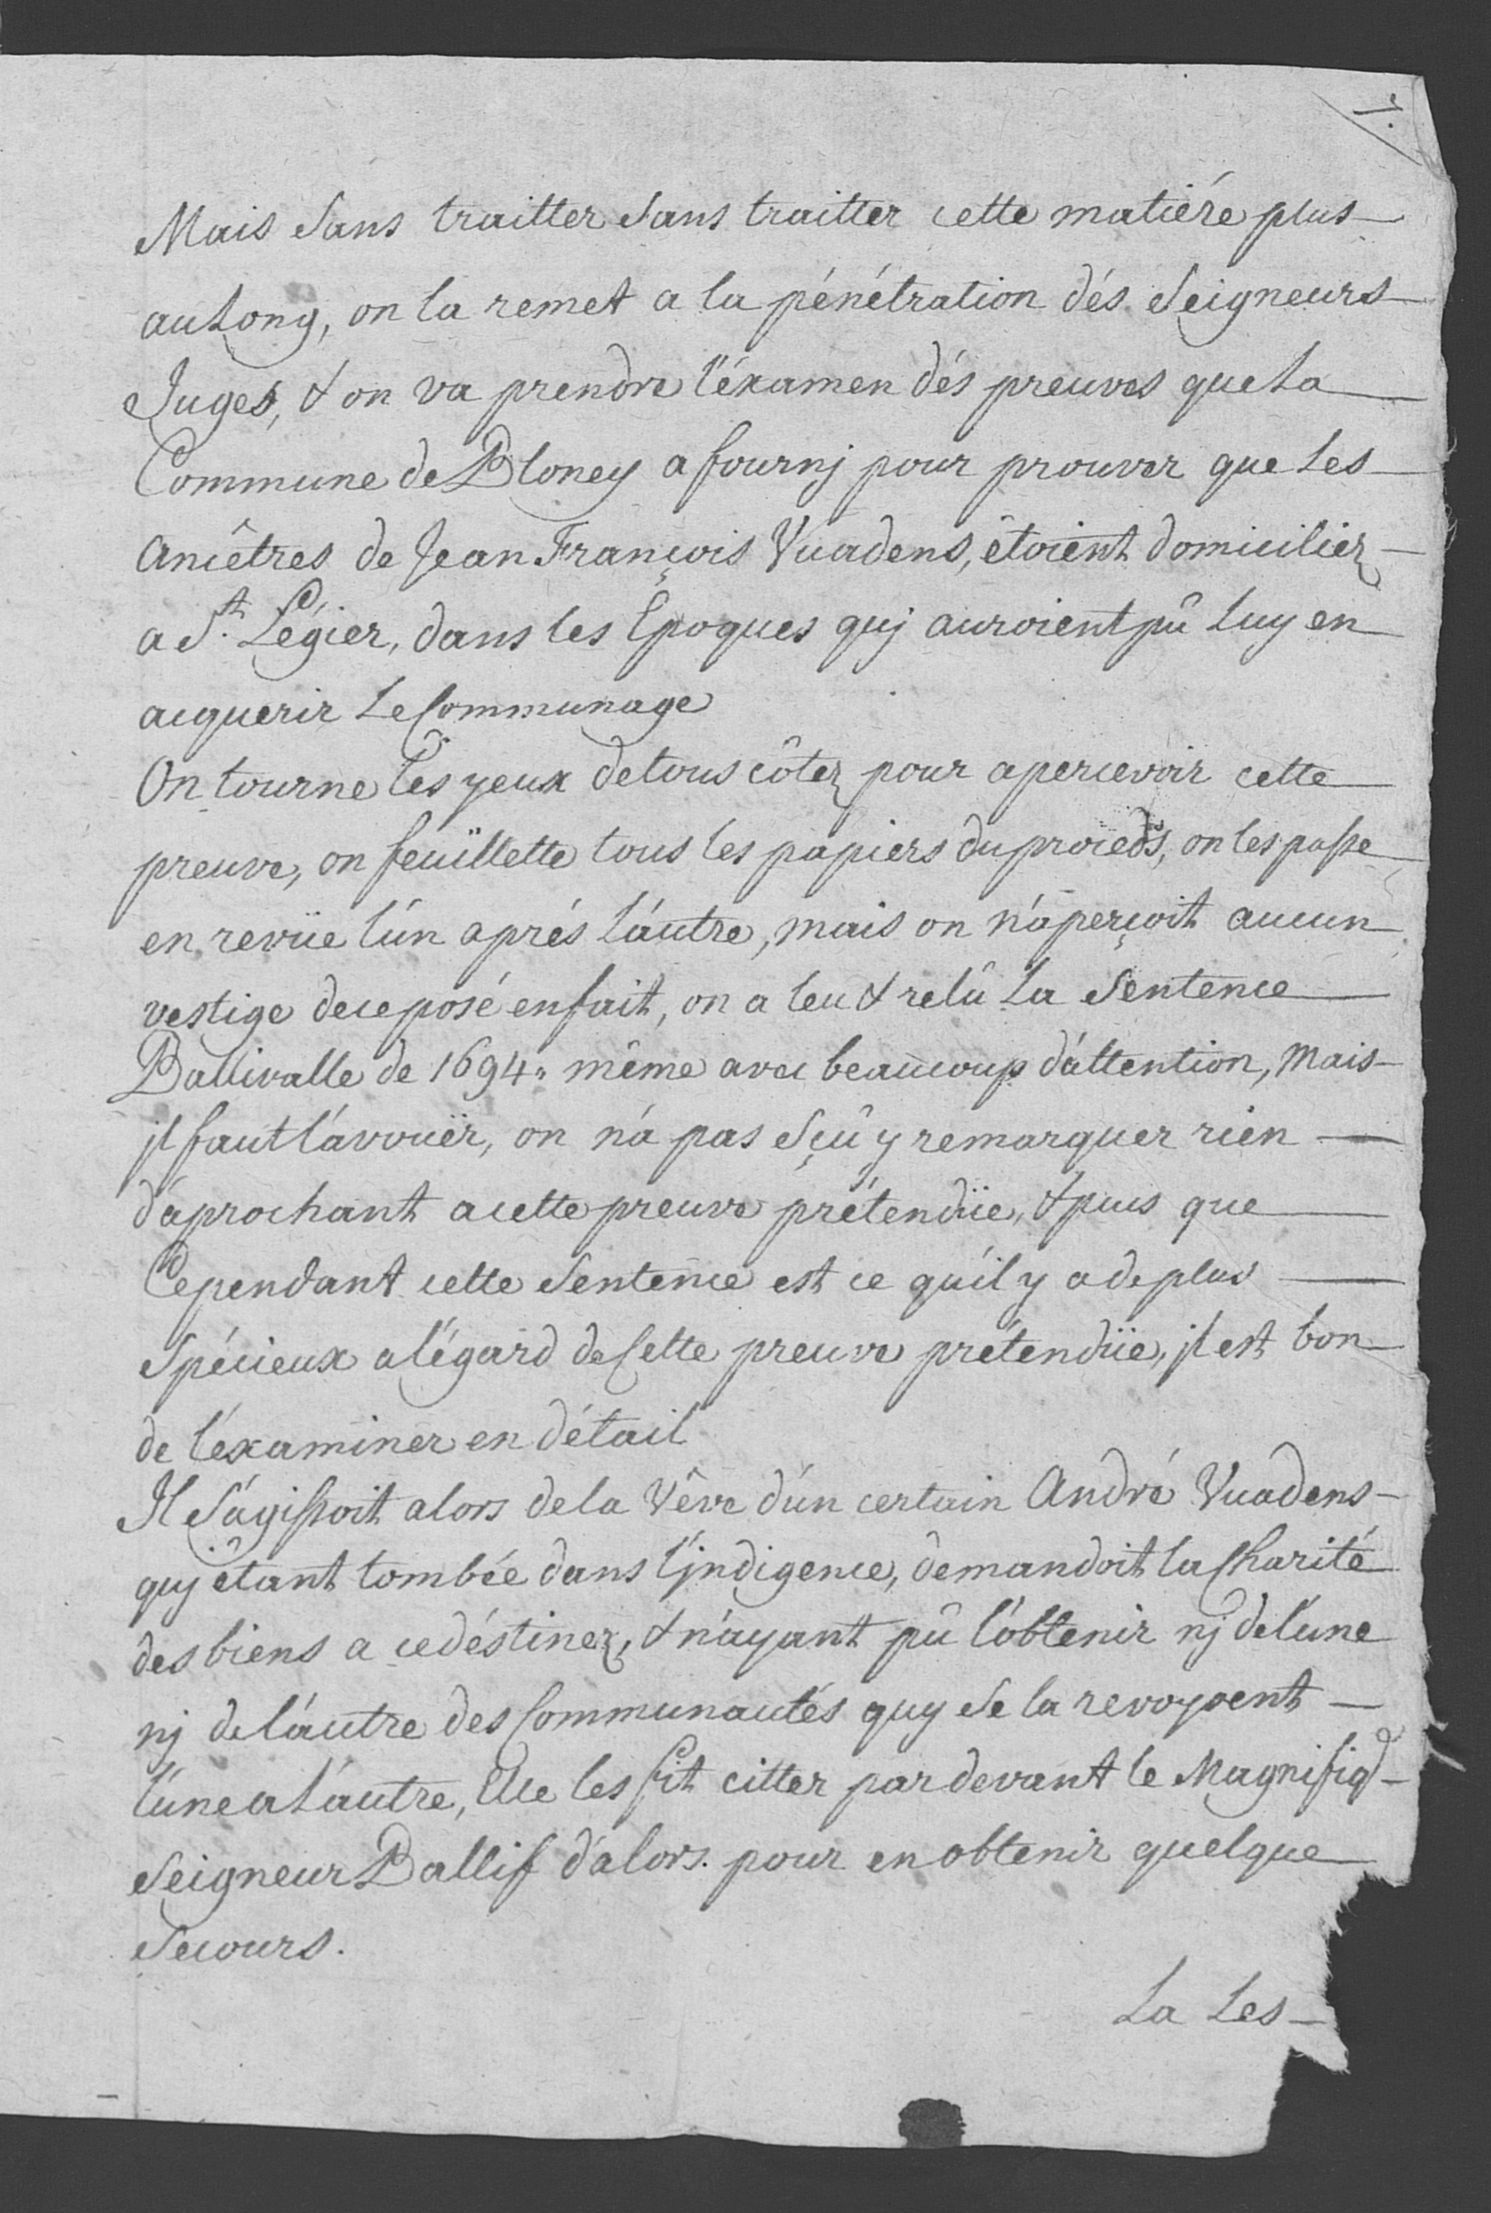 7.
Mais Sans traitter Sans traitter cette matiére plus
au Long, on la remet a la pénétration dés Seigneurs
Juges, & on va prendre l'éxamen dés preuves que La
Commune de Bloney a fournj pour prouver que Les
Ancêtres de Jean François Vuadens, êtoient domiciliez
a St. Légier, dans les Epoques quj auroient pû Luy en
acquerir Le Communage
On tourne les yeux de tous côtez pour apercevoir cette
preuve, on feuïllette tous les papiers du proceds, on les passe
en revüe l'ún aprés l'áutre, mais on n'áperçoit aucun
vestige de ce posé en fait, on a leu & relû La Sentence
Ballivalle de 1694. même avec beaucoup d'áttention, Mais
jl faut l'ávouër, on n'á pas Sçû y remarquer rien
d'áprochant a cette preuve prétendüe, & puis que
Cependant cette Sentence est ce qu'íl y a de plus
Spécieux a l'égard de Cette preuve prétendüe, jl est bon
de l'éxaminer en détail
Il S'ágissoit alors de la Vêve d'ún certain André Vuadens
quj êtant tombée dans l'jndigence, demandoit la Charité
des biens a ce déstinez, & n'áyant pû l'óbtenir nj de l'úne
nj de l'áutre des Communautés quy Se la revoyoent
l'úne a L'áutre, Elle les fit citter par devant le Magnifiq
Seigneur Ballif d'álors. pour en obtenir quelque
Secours.
La Les